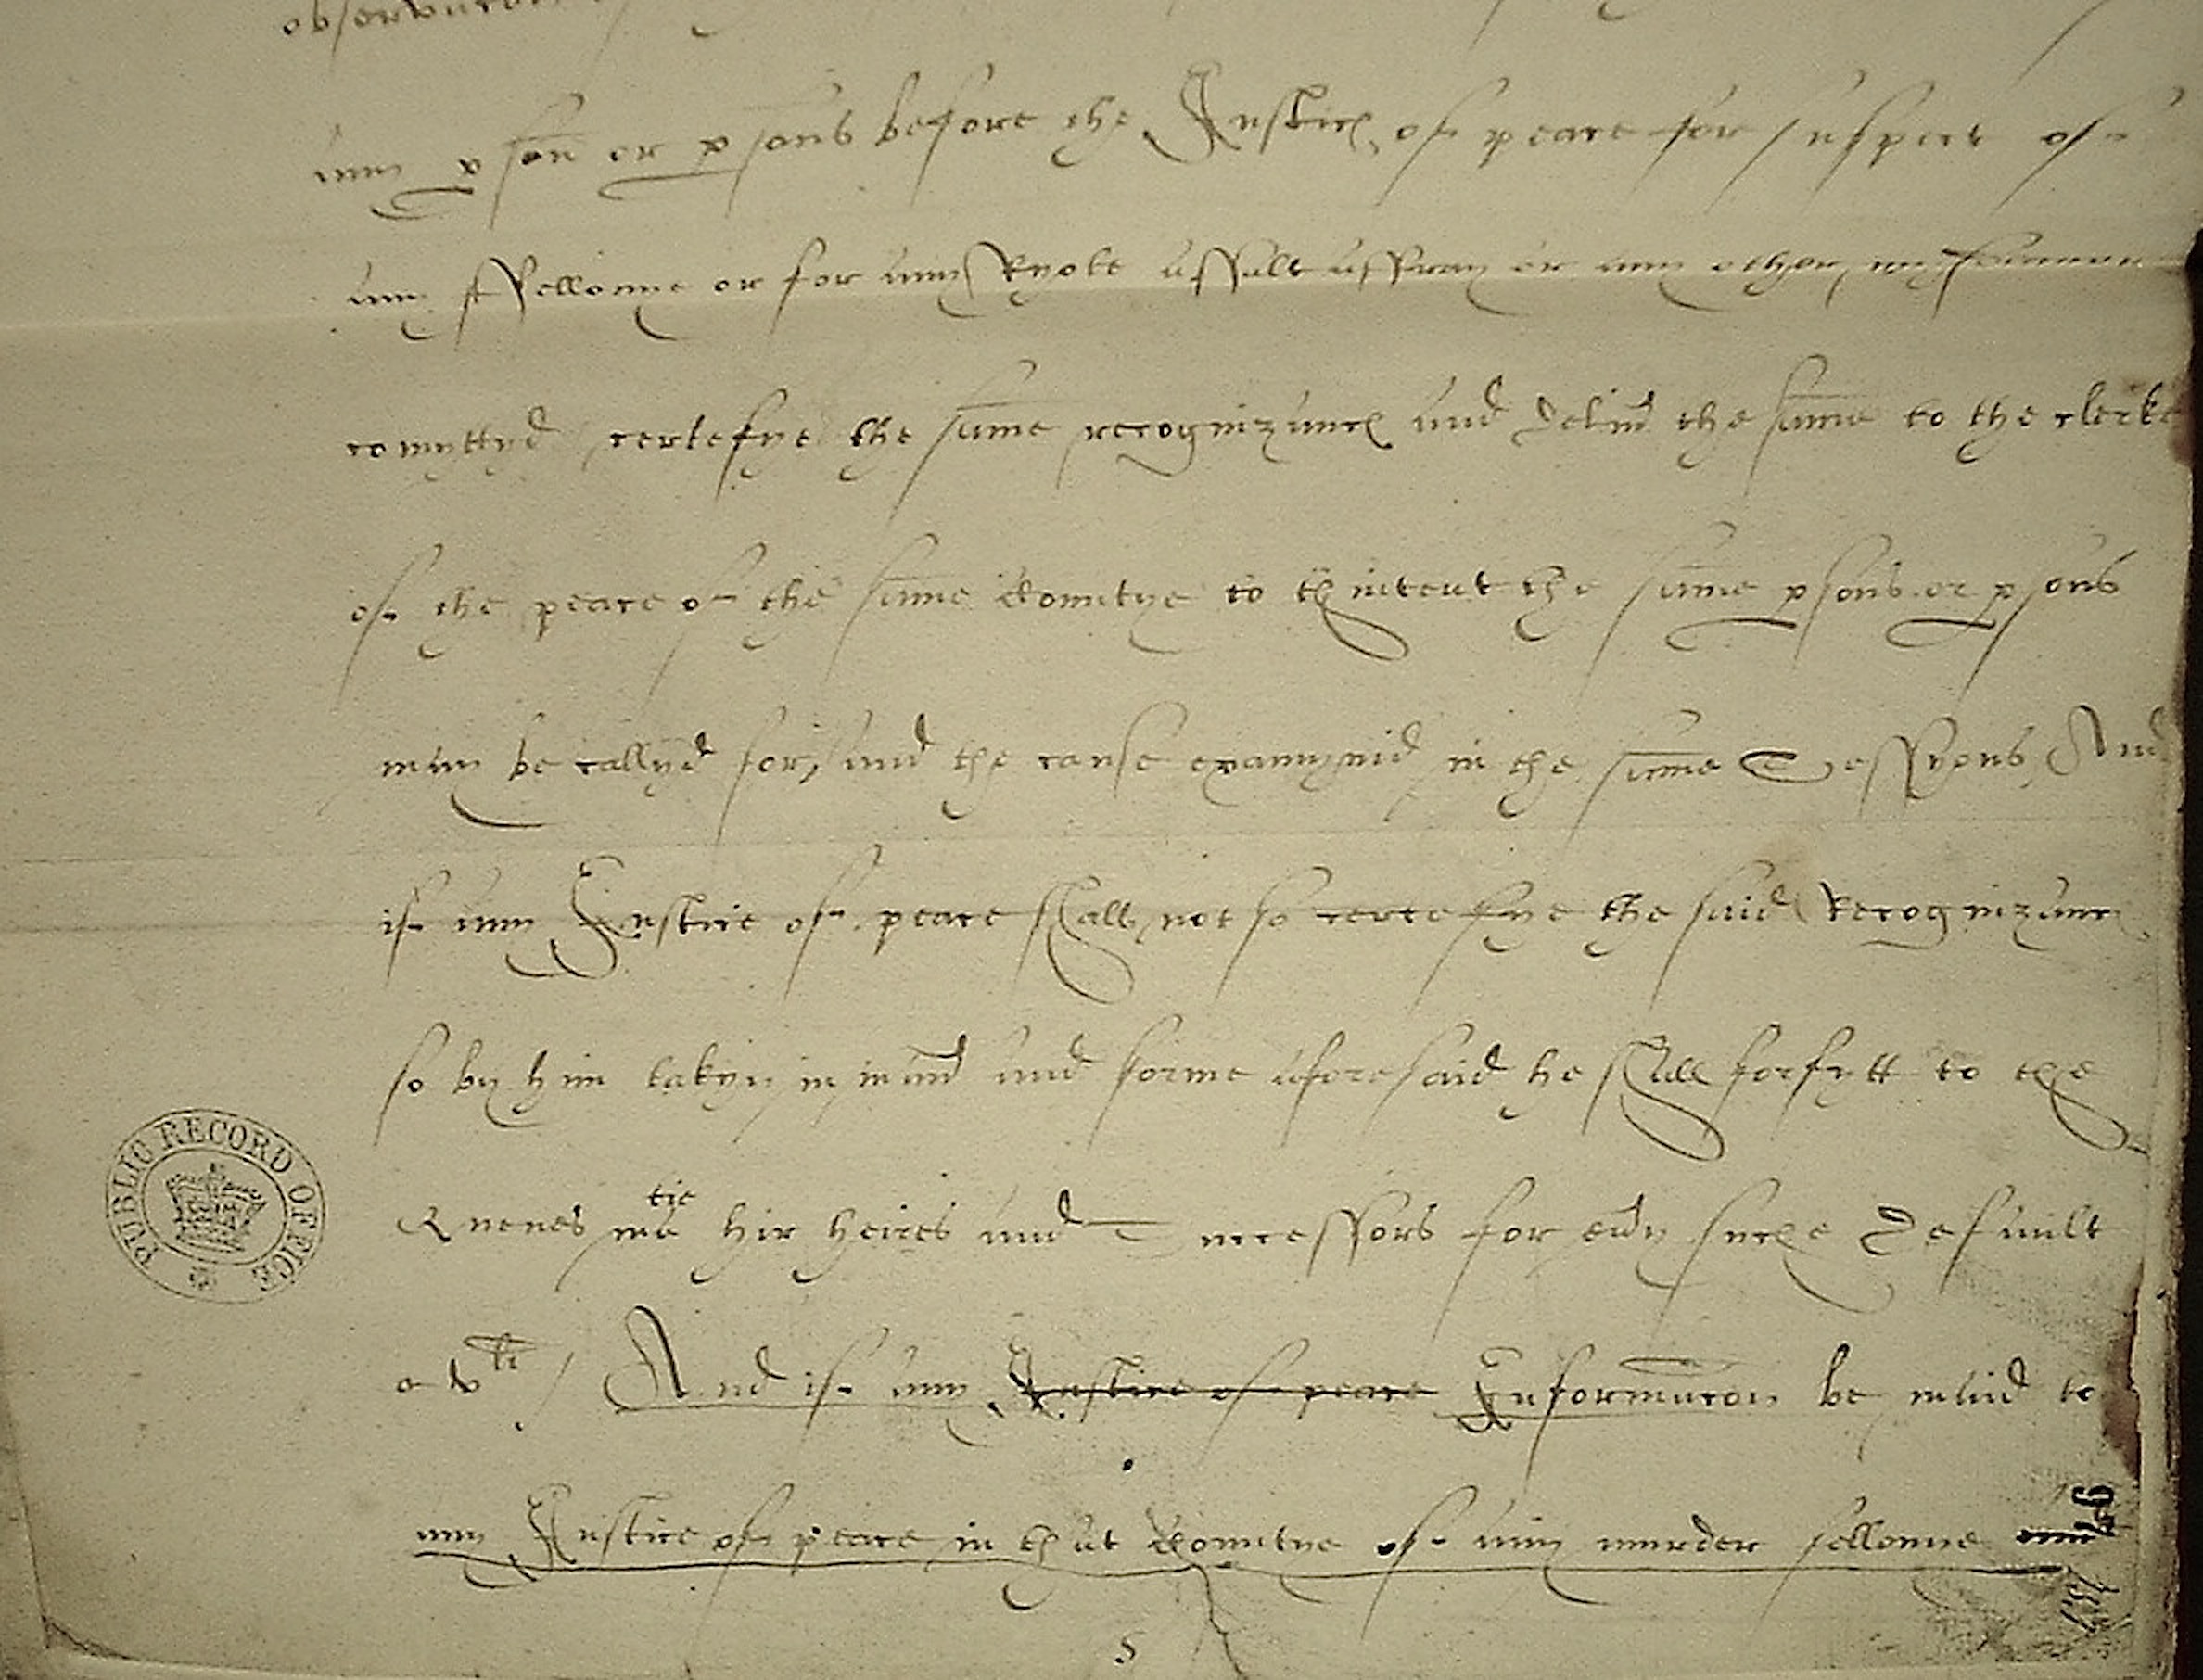 any pson or psons before the Justice of peace for suspect of
any ffellonye or for any Ryote assalt affray or any other
comyttyd certefye the same recognizance and delivd the same to the clerke
of the peace of the same Countye to thintent the same psons or psons
may be callyd for, and the cause examynid in the same Sessyons And
if any Justice of peace shall not so certefye the said Recognizance
so by him takyn in mand and forme aforesaid he shall forfytt to the
Quenes matie hir heires and Successors for evy suche Default
vli / And if any Justice of peace Informacon be maid to
any Justice of peace in that Countye of any murder fellonye
PUBLIC RECORD OFFICE
5